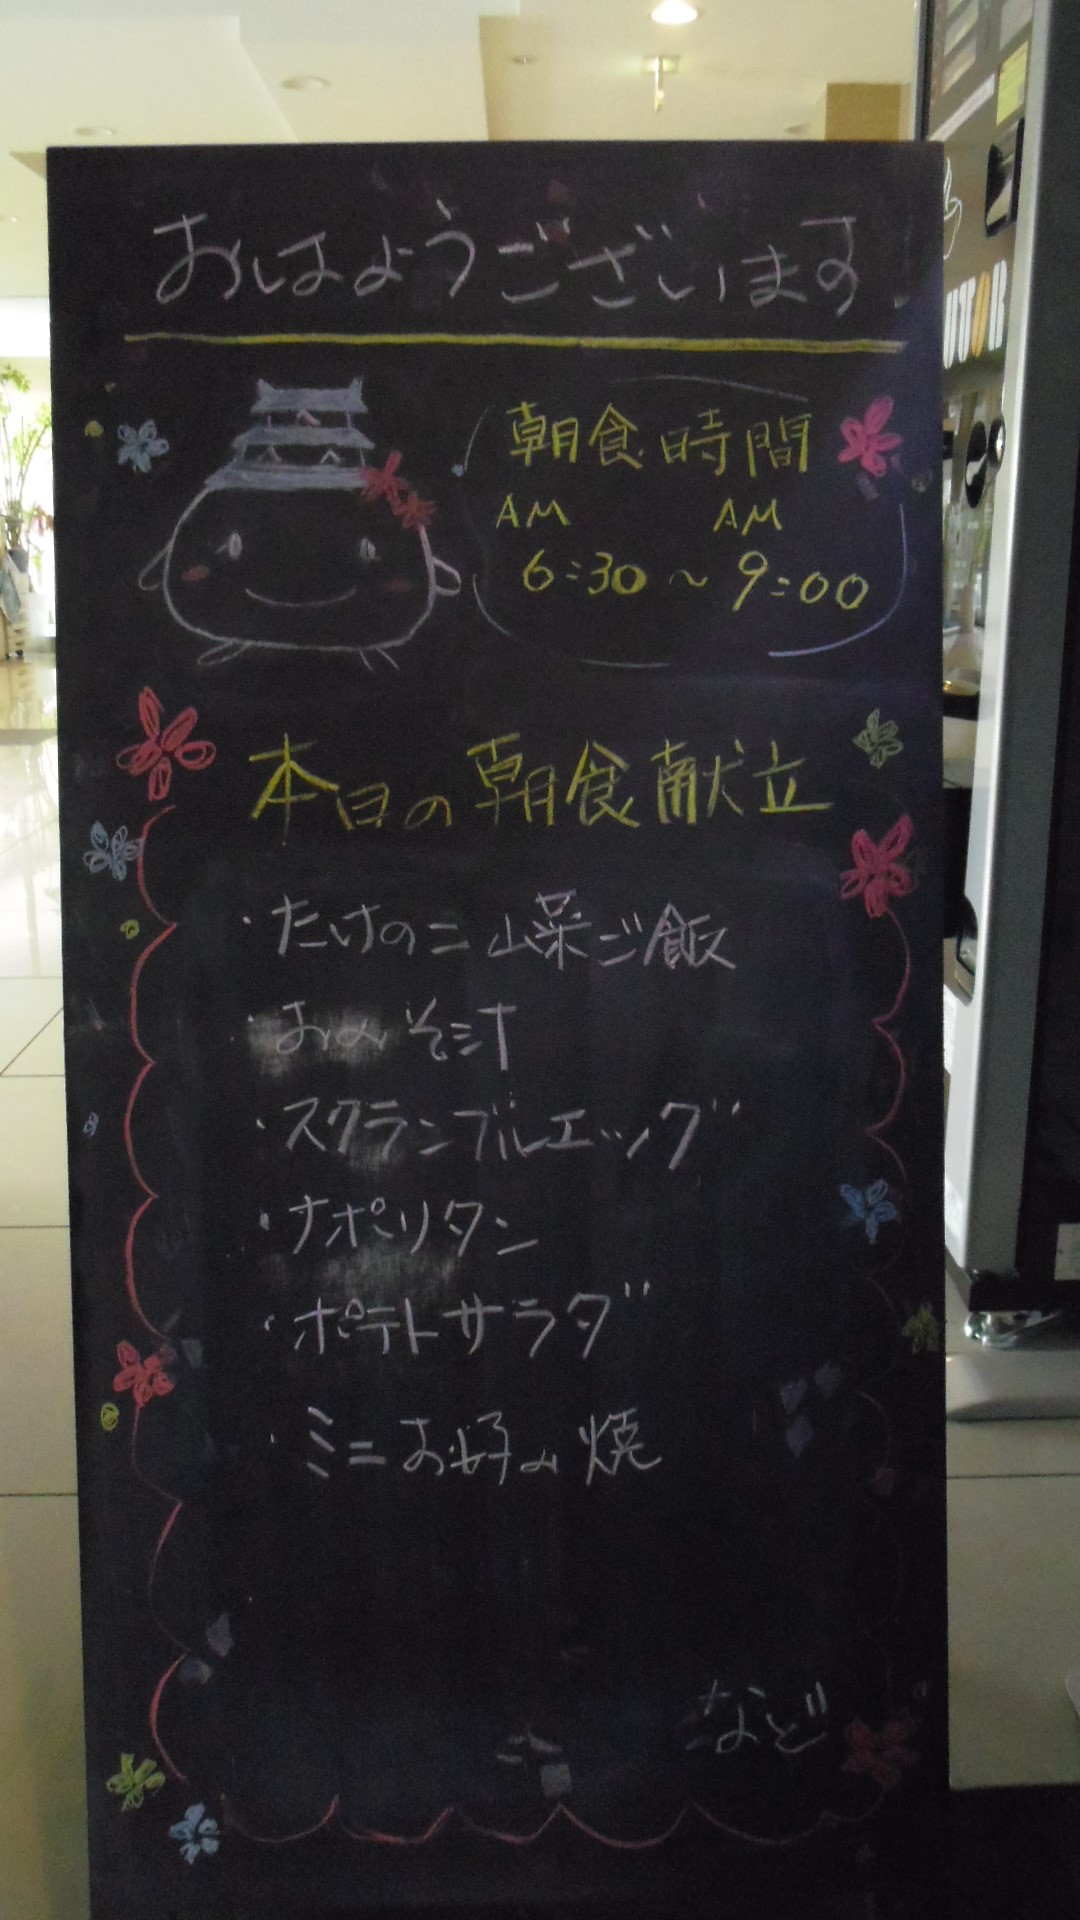 おはようございます!
朝食時間
AM AM
6:30～9:00
本日の朝食献立
・たけのこ山菜ご飯
・おみそ汁
・スクランブルエッグ
・ナポリタン
・ポテトサラダ
・ミニお好み焼
など